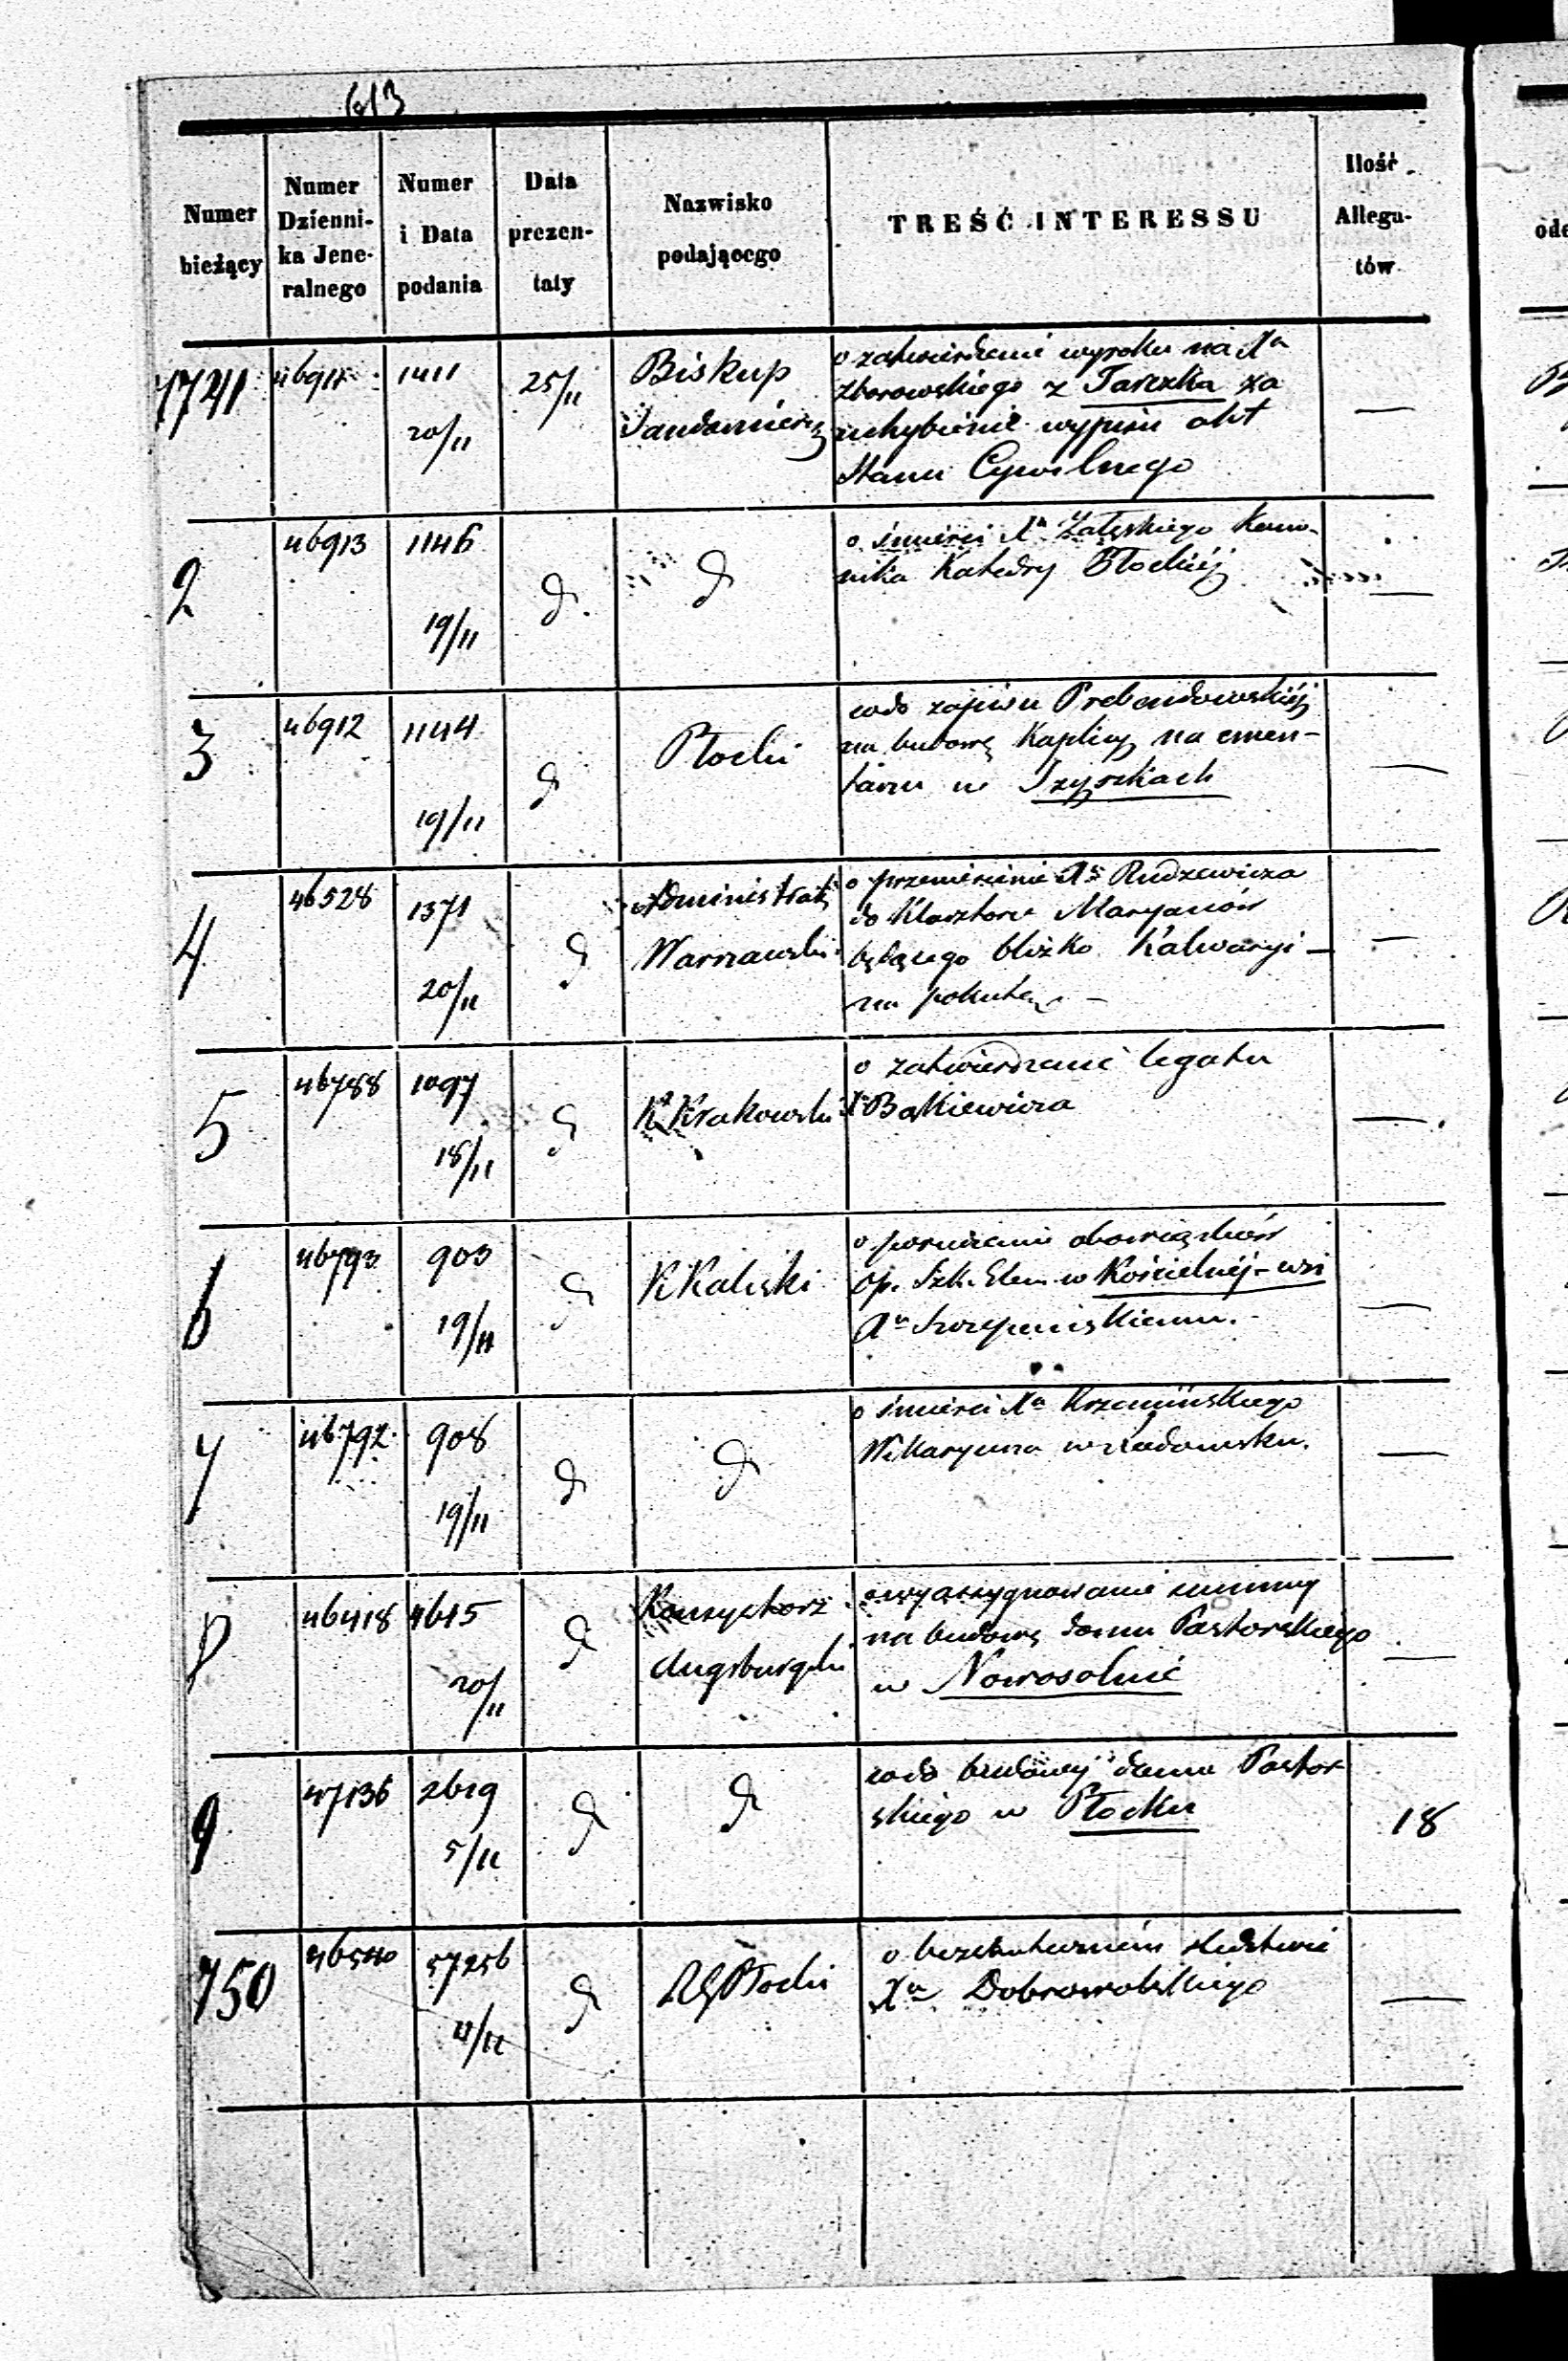 613
Numer bieżący | Numer Dzienni-ka Jene-ralnego | Numer i Data podania | Data prezen-taty | Nazwisko podającego | TREŚĆ INTERESSU | Ilość Allega-tów
1741 | 46911 | 1411 20/11 | 25/11 | Biskup Sandomiersk
o zatwierdzenie wyroku na Xa
Zborowskiego z Tarczka za
uchybienie wypisu akt
Stanu Cywilnego
—
2 | 46913 | 1146 19/11 | d | d
o śmierci Xa Załęskiego Kano-
nika Katedry Płockiéj
—
3 | 46912 | 1144 19/11 | d | Płocki
codo zapisu Prebendowskiéj
na budowę Kaplicy na cmen-
tarzu w Izyszkach
—
4 | 46528 | 1371 20/11 | d | Administrat. Warszawski
o przeniesienie Xa Rudzewicza
do Klasztoru Maryanów
będącego blizko Kalwaryi —
na pokutę —
—
5 | 46788 | 1097 18/11 | d | K Krakowski
o zatwierdzenie legatu
Xa Bąkiewicza
—
6 | 46793 | 903 19/11 | d | K Kaliski
o poruczenie obowiązków
Op. Szk. Elem. w Kościelnéj-wsi
Xu Szczepańskiemu.
—
7 | 46792 | 908 19/11 | d | d
o śmierci Xa Krzemińskiego
Wikaryusza w Radomsku.
—
8 | 46418 | 4645 20/11 | d | Konsystorz Augsburgski
o wyassygnowanie summy
na budowę domu Pastorskiego
w Nowosolnie
—
9 | 47136 | 2619 5/11 | d | d
codo budowy domu Pastor
skiego w Płocku
18
750 | 46540 | 57256 | d | RG Płocki
o bezskutecznem śledztwie
Xa Dobrowolskiego
—